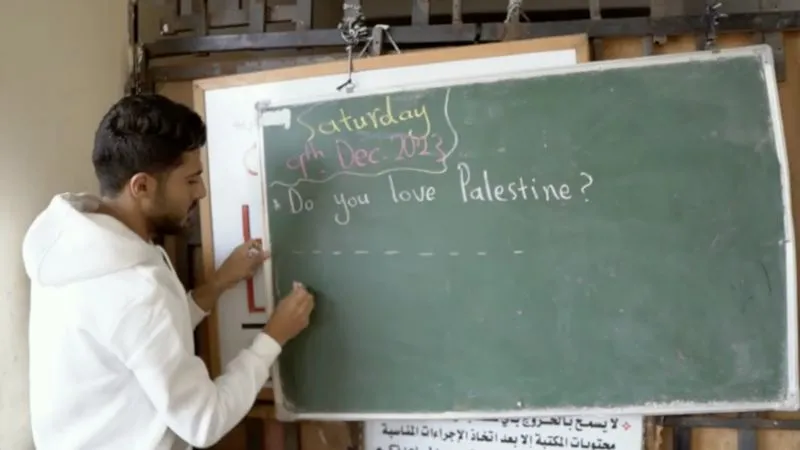 Saturday
9th Dec. 2023
* Do you love Palestine?
_ _ _ _ _ _ _ _
لا يسمح بالخروج بأي
محتويات المكتبة إلا بعد اتخاذ الإجراءات المناسبة